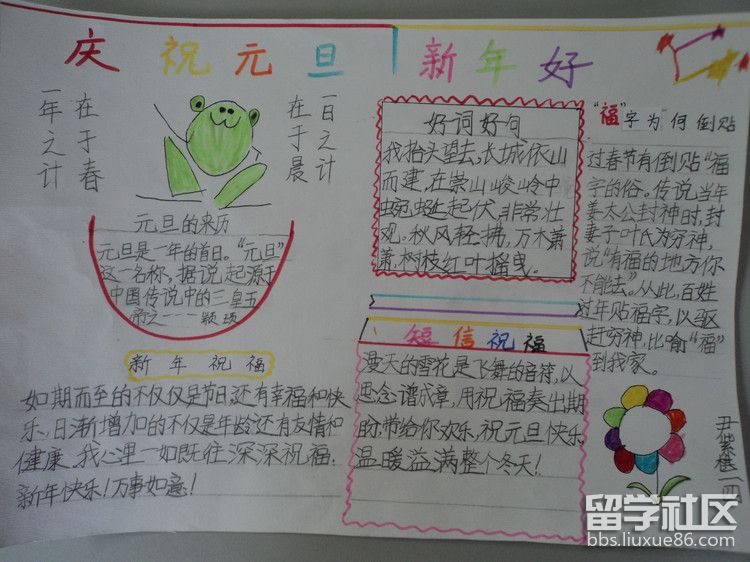 庆祝元旦 新年好
一年之计
在于春
一日之计
在于晨
元旦的来历
元旦是一年的首日。“元旦”
这一名称，据说起源于
中国传说中的三皇五
帝之一——颛顼
新年祝福
如期而至的不仅仅是节日，还有幸福和快
乐，日渐增加的不仅是年龄还有友情和
健康。我心里一如既往深深祝福：
新年快乐！万事如意！
好词好句
我抬头望去，长城依山
而建，在崇山峻岭中
蜿蜒起伏，非常壮
观。秋风轻拂，万木萧
萧，树枝红叶摇曳。
短信祝福
漫天的雪花是飞舞的音符，以
思念谱成章，用祝福奏出期
盼，带给你欢乐，祝元旦快乐
温暖溢满整个冬天！
“福”字为何倒贴
过春节有倒贴“福”
字的俗。传说当年
姜太公封神时，封
妻子叶氏为穷神，
说“有福的地方你
不能去”。从此，百姓
过年贴福字，以驱
赶穷神，比喻“福”
到我家。
留学社区
bbs.liuxue86.com